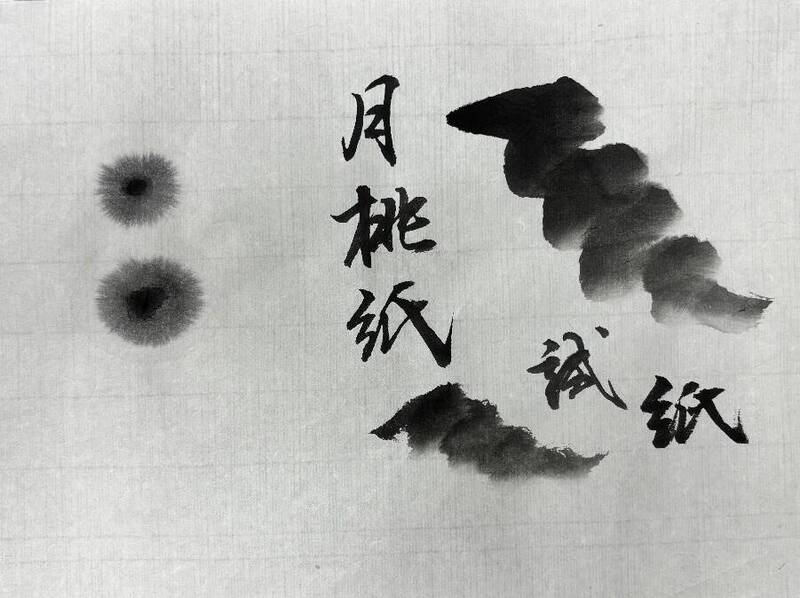 月桃紙
試紙